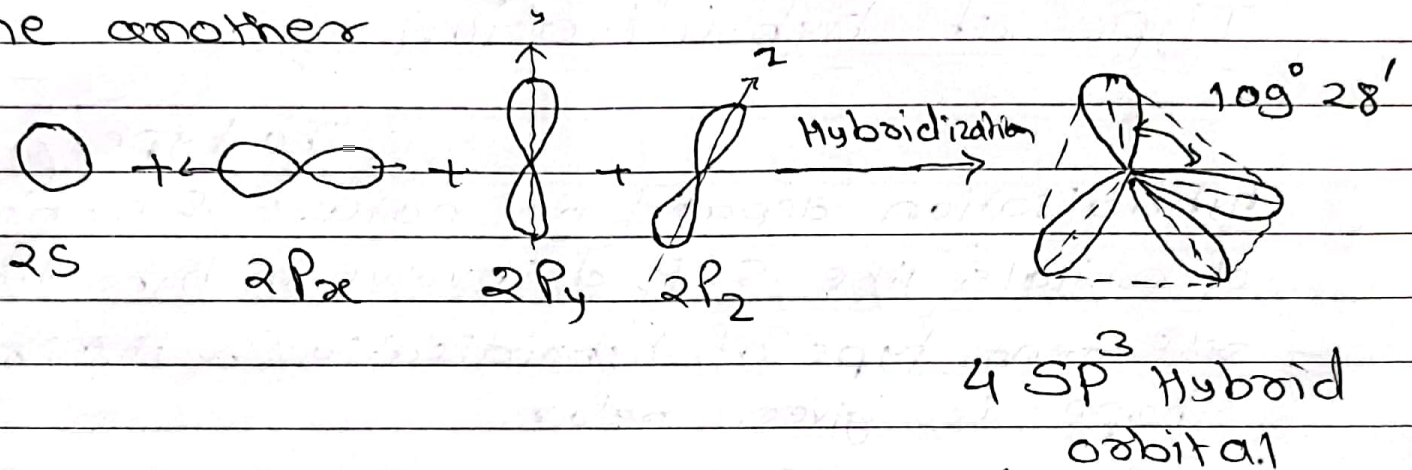 he another
y
z
109° 28'
+ + + Hybridization
2S 2Px 2Py 2Pz
4 SP³ Hybrid
orbital